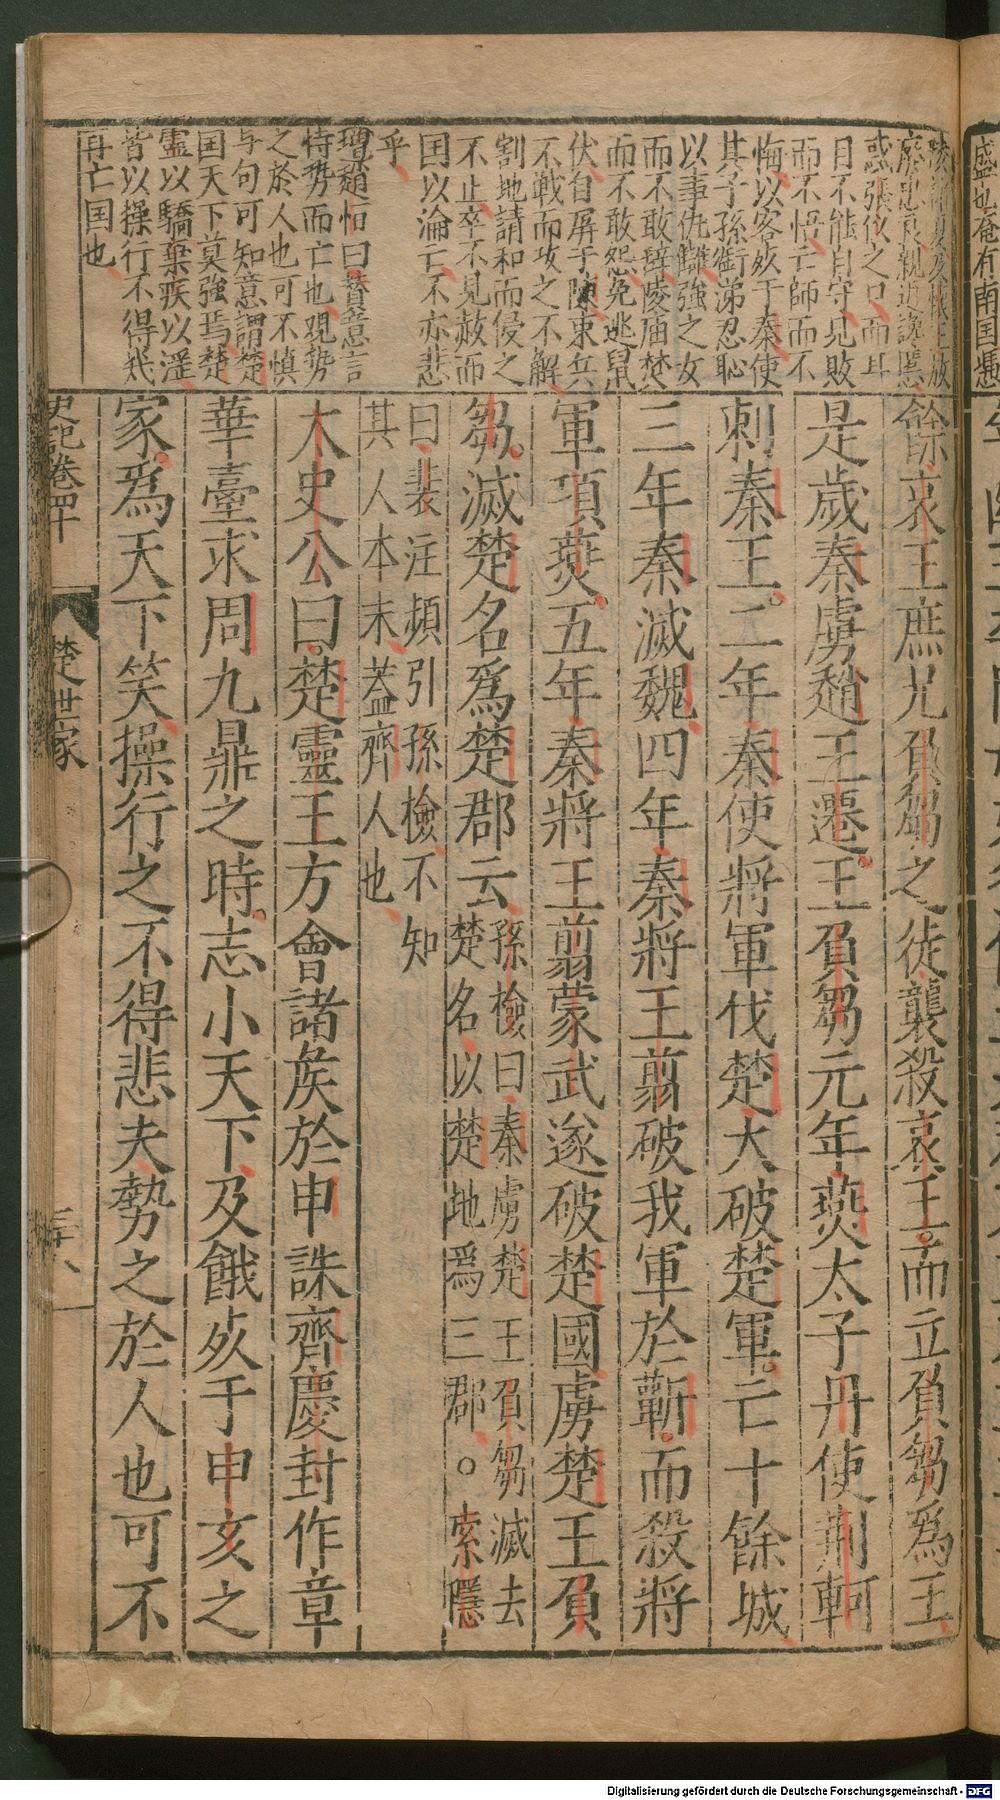 餘哀王庶兄負芻之徒襲殺哀王而立負芻爲王
是歲秦虜趙王遷王負芻元年燕太子丹使荆軻
刺秦王二年秦使將軍伐楚大破楚軍亡十餘城
三年秦滅魏四年秦將王翦破我軍於蘄而殺將
軍項燕五年秦將王翦蒙武遂破楚國虜楚王負
芻滅楚名爲楚郡云
孫檢曰秦虜楚王負芻滅去
楚名以楚地爲三郡○索隱
曰裴注頻引孫檢不知
其人本末蓋齊人也
太史公曰楚靈王方會諸矦於申誅齊慶封作章
華臺求周九鼎之時志小天下及餓死于申亥之
家爲天下笑操行之不得悲夫勢之於人也可不
惑張仪之口而耳
目不能自守見敗
而不悟亡師而不
悔以客死于秦使
其子孫銜涕忍恥
以事仇讎強之女
而不敢辭陵庙焚
而不敢怨兔逃鼠
伏自屏于陳東兵
不戦而攻之不解
割地請和而侵之
不止卒不見赦而
国以淪亡不亦悲
乎
趙恒曰贊意言
恃势而亡也观势
之於人也可不慎
与句可知意謂楚
国天下莫強焉楚
霊以驕棄疾以淫
皆以操行不得幾
再亡国也
史記卷四十
楚世家
三十八
盛也奄有南国憑
Digitalisierung gefördert durch die Deutsche Forschungsgemeinschaft - DFG